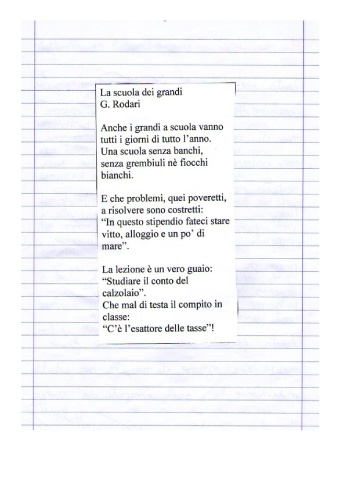 La scuola dei grandi
G. Rodari
Anche i grandi a scuola vanno
tutti i giorni di tutto l'anno.
Una scuola senza banchi,
senza grembiuli nè fiocchi
bianchi.
E che problemi, quei poveretti,
a risolvere sono costretti:
“In questo stipendio fateci stare
vitto, alloggio e un po' di
mare”.
La lezione è un vero guaio:
“Studiare il conto del
calzolaio”.
Che mal di testa il compito in
classe:
“C'è l'esattore delle tasse”!